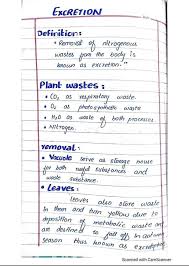 EXCRETION
Definition:
• Removal of nitrogenous
wastes from the body is
known as excretion.
Plant wastes:
• CO₂ as respiratory waste.
• O₂ as photosynthetic waste
• H₂O as waste of both processes
• Nitrogen.
removal:
• Vacuole serve as storage house
for both useful substances and
waste substance.
• Leaves:
Leaves also store waste
in them and turn yellow due to
deposition of metabolic waste and
are destined to fall off in autumn
season thus known as
Scanned with CamScanner